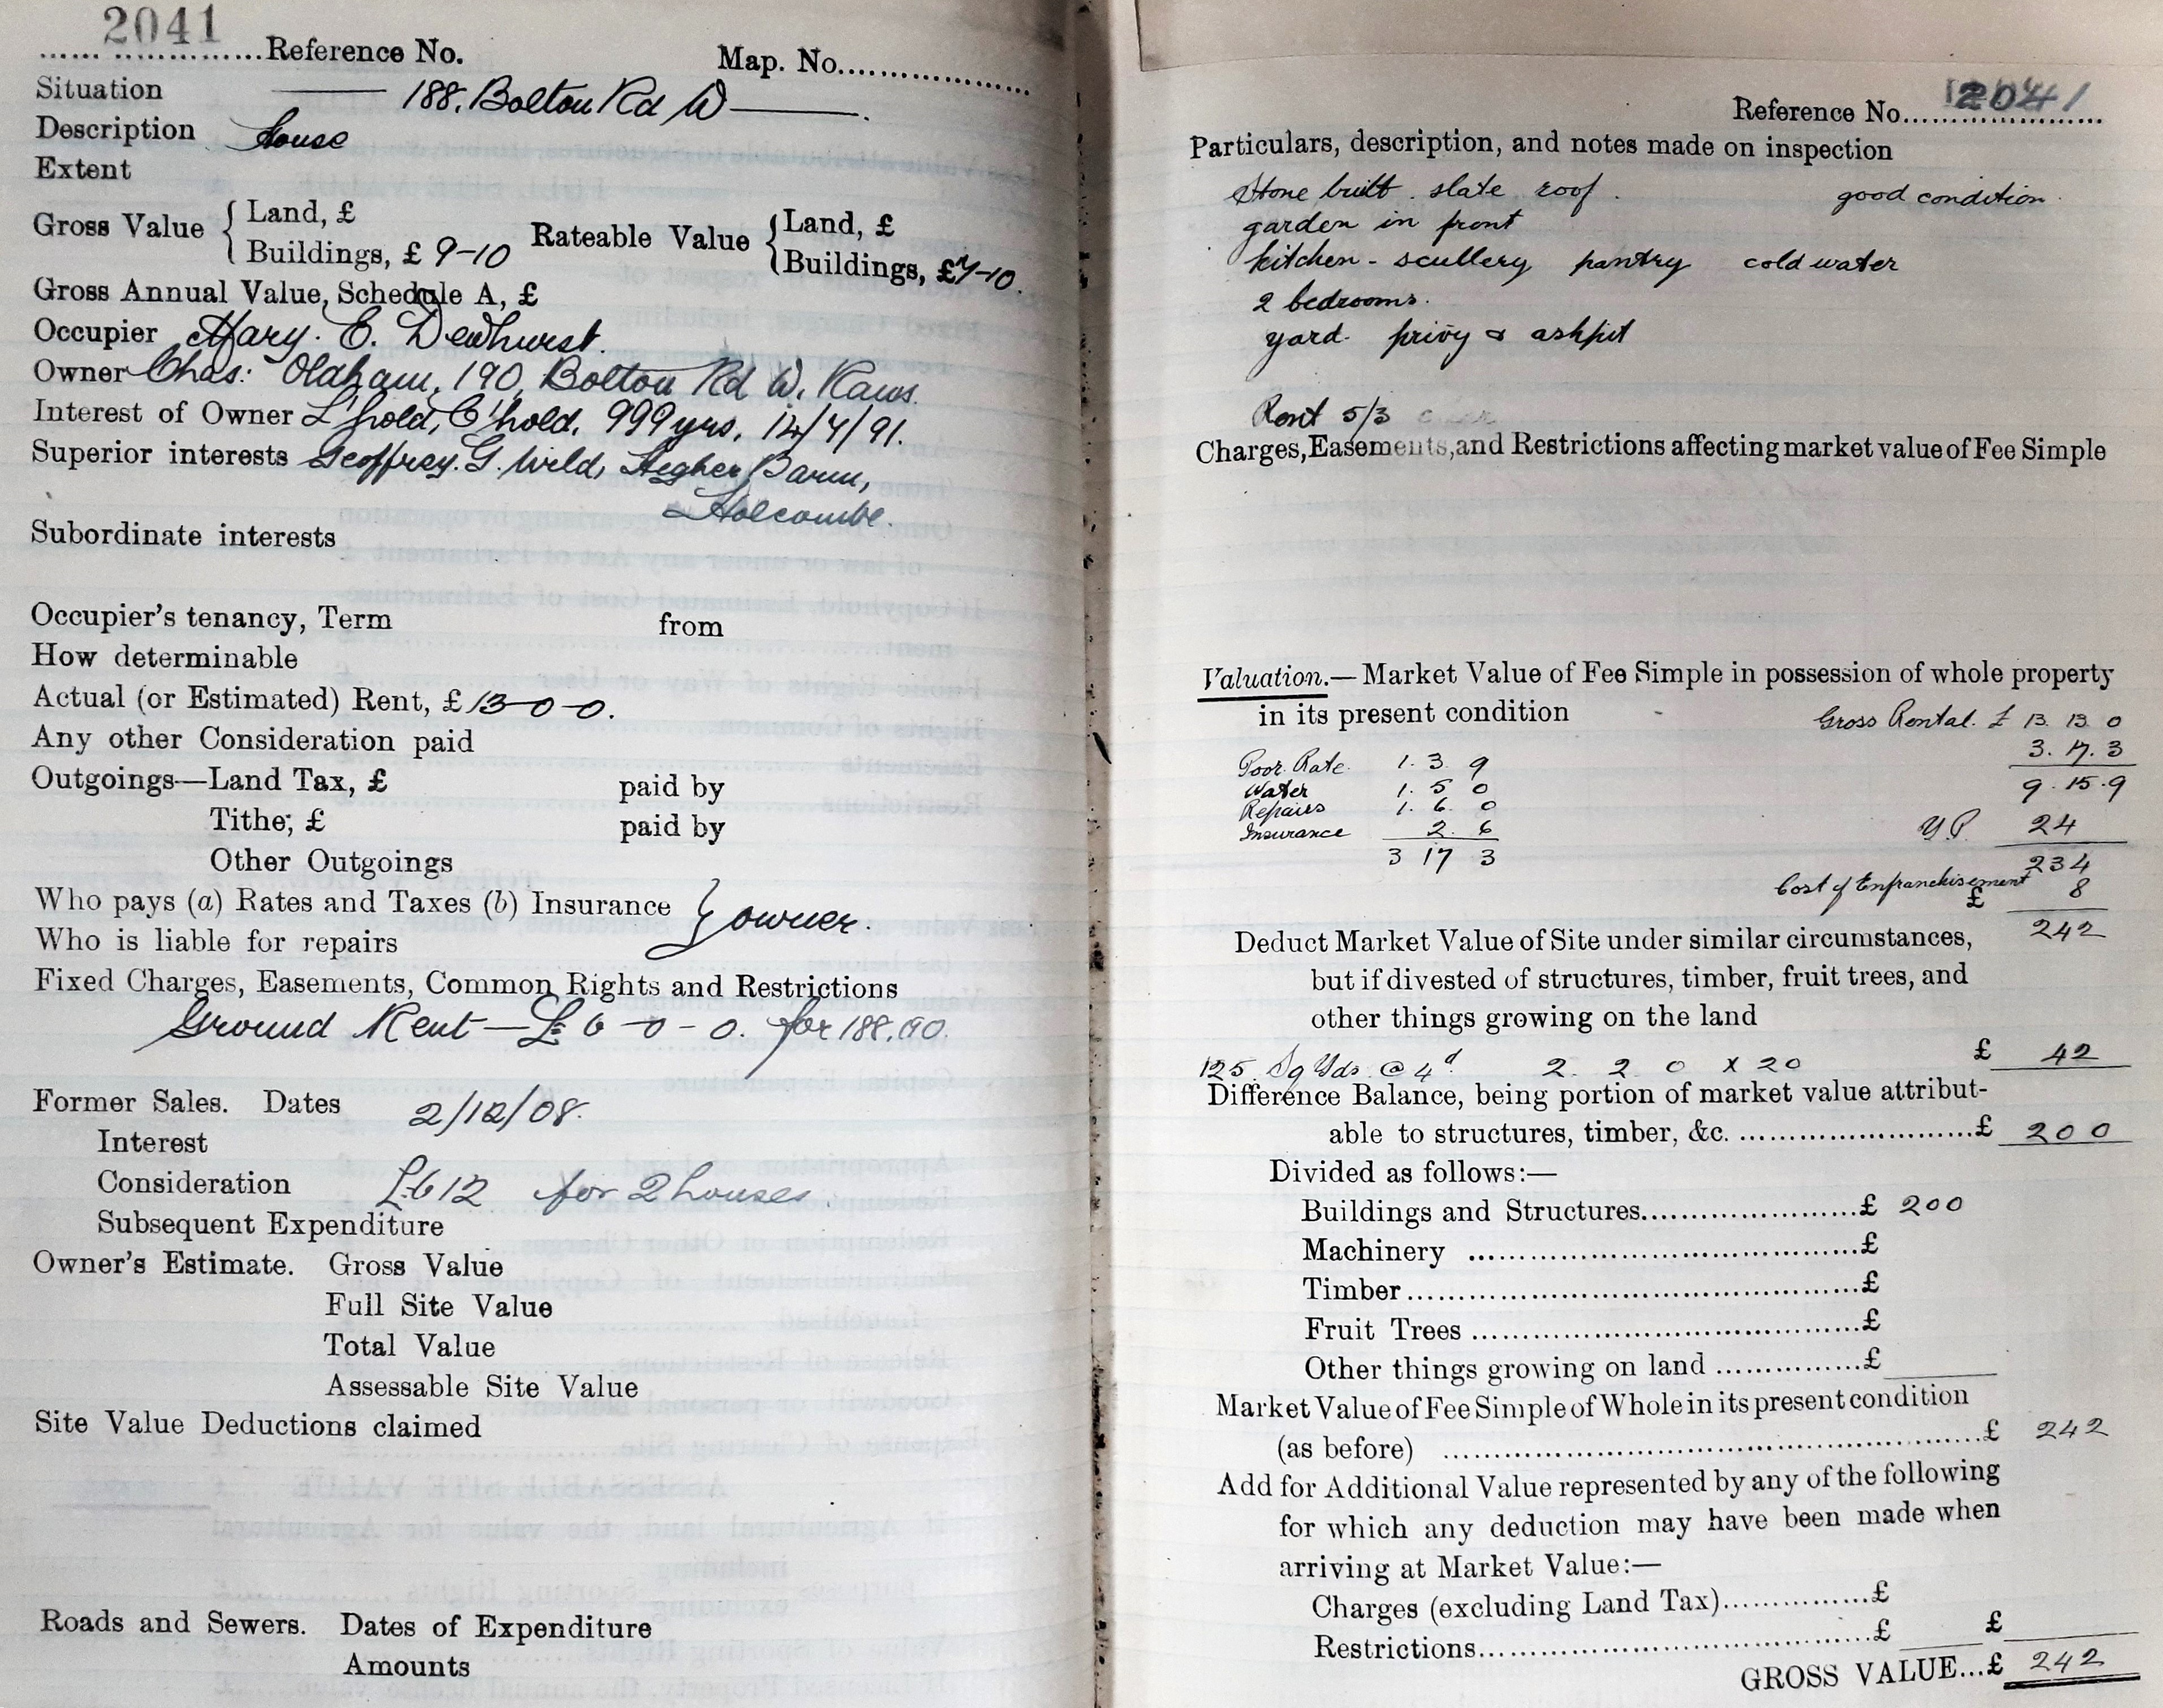 2041
...... ..............Reference No. Map. No......................
Situation —— 188, Bolton Rd W ——.
Description House
Extent
Gross Value { Land, £ Rateable Value { Land, £
Buildings, £ 9-10 Buildings, £7-10.
Gross Annual Value, Schedule A, £
Occupier Mary. E. Dewhurst.
Owner Chas: Oldham, 190, Bolton Rd W. Rams.
Interest of Owner L'hold, C'hold, 999 yrs, 14/7/91.
Superior interests Geoffrey. G. Wild, Higher Barn,
Holcombe.
Subordinate interests
Occupier's tenancy, Term from
How determinable
Actual (or Estimated) Rent, £ 13-0-0.
Any other Consideration paid
Outgoings—Land Tax, £ paid by
Tithe, £ paid by
Other Outgoings
Who pays (a) Rates and Taxes (b) Insurance } owner.
Who is liable for repairs
Fixed Charges, Easements, Common Rights and Restrictions
Ground Rent — £6-0-0. for 188,190.
Former Sales. Dates 2/12/08.
Interest
Consideration £612 for 2 houses.
Subsequent Expenditure
Owner's Estimate. Gross Value
Full Site Value
Total Value
Assessable Site Value
Site Value Deductions claimed
Roads and Sewers. Dates of Expenditure
Amounts
Reference No. 2041
Particulars, description, and notes made on inspection
Stone built. slate roof. good condition.
garden in front
kitchen - scullery pantry cold water
2 bedrooms.
yard. privy & ashpit
Rent 5/3
Charges, Easements, and Restrictions affecting market value of Fee Simple
Valuation.—Market Value of Fee Simple in possession of whole property
in its present condition Gross Rental. £ 13. 13. 0
Poor Rate. 1. 3. 9 3. 17. 3
Water 1. 5. 0 9. 15. 9
Repairs 1. 6. 0
Insurance 2. 6 Y.P. 24
3 17 3 234
Cost of Enfranchisement 8
£ 242
Deduct Market Value of Site under similar circumstances,
but if divested of structures, timber, fruit trees, and
other things growing on the land
125 Sq Yds @ 4d 2. 2. 0 x 20 £ 42
Difference Balance, being portion of market value attribut-
able to structures, timber, &c. ........................£ 200
Divided as follows:—
Buildings and Structures......................£ 200
Machinery ........................................£
Timber..............................................£
Fruit Trees .......................................£
Other things growing on land ...............£
Market Value of Fee Simple of Whole in its present condition
(as before) ........................................................£ 242
Add for Additional Value represented by any of the following
for which any deduction may have been made when
arriving at Market Value:—
Charges (excluding Land Tax)...............£
Restrictions.......................................£ £
GROSS VALUE...£ 242